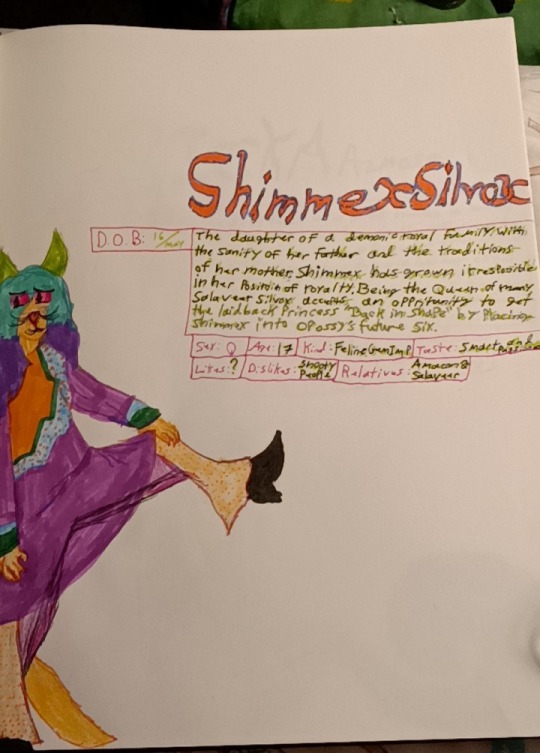 Shimmex Silvox
D.O.B: 16/may
The daughter of a demonic royal family. With
the sanity of her father and the traditions
of her mother, Shimmex has grown irresposible
in her position of royalty. Being the Queen of many
Salaveer Silvox accepts an opprtunity to get
the laidback Princess "Back in Shape" by Placing
Shimmex into OPossy's future Six.
Sex: Q Age: 17 Kind: Feline Gem Imp Taste: Smart and
Likes: ? Dislikes: Snooty People Relatives: Amacon & Salaveer